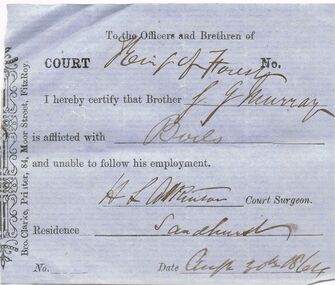 To the Officers and Brethren of
COURT King of Forest No.
I hereby certify that Brother J G Murray
is afflicted with Boils
and unable to follow his employment.
H L Atkinson Court Surgeon.
Residence Sandhurst
No. Date Aug 30th 1864
Bro. Clarke, Printer, 84, Moor Street, FitzRoy